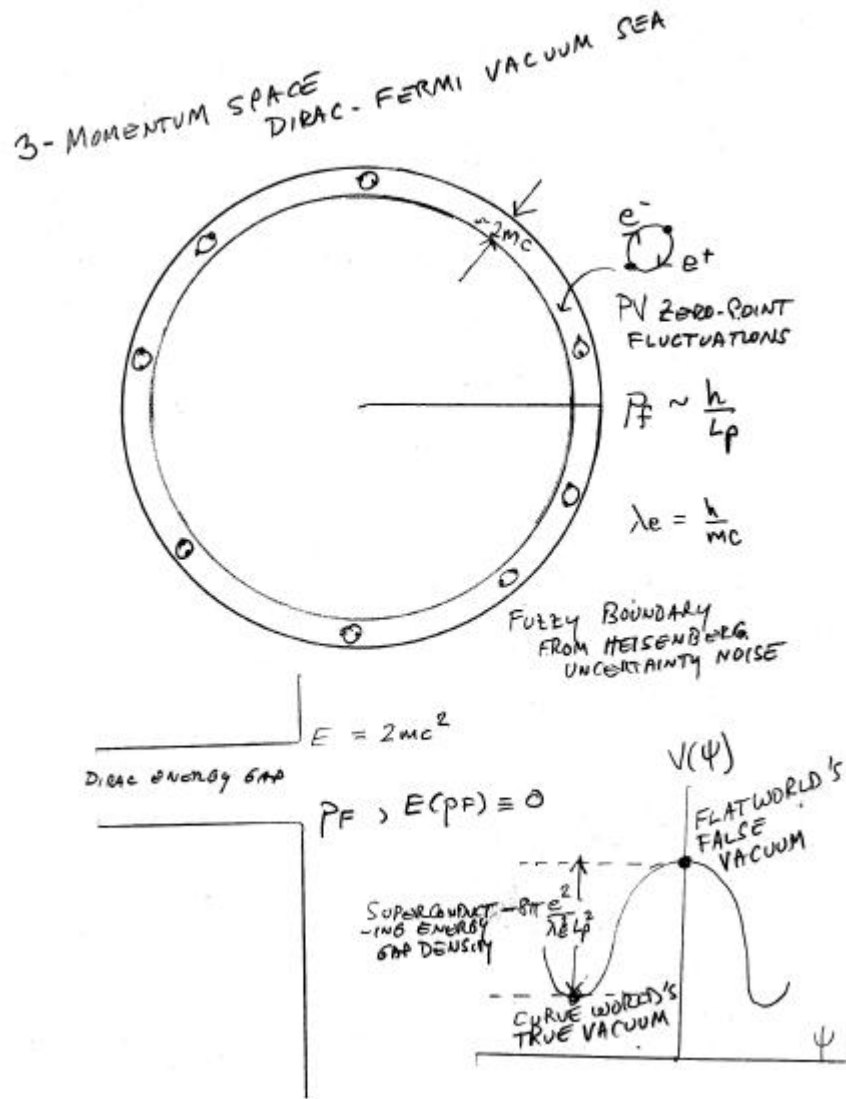 3-MOMENTUM SPACE
DIRAC-FERMI VACUUM SEA
~2mc
e-
e+
PV ZERO-POINT
FLUCTUATIONS
PF ~ h/Lp
λe = h/mc
FUZZY BOUNDARY
FROM HEISENBERG
UNCERTAINTY NOISE
E = 2mc²
DIRAC ENERGY GAP
PF , E(PF) ≡ 0
V(ψ)
FLATWORLD'S
FALSE
VACUUM
SUPERCONDUCT
-ING ENERGY
GAP DENSITY
CURVE WORLD'S
TRUE VACUUM
ψ